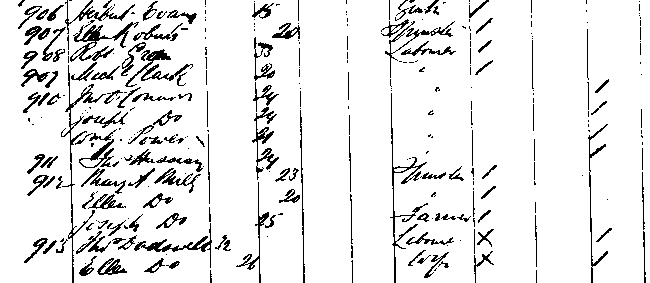 906 Herbert Evans 15
907 Ellen Roberts 20 Spinster /
908 Robt Green 33 Labourer /
909 Michl Clark 20 " /
910 Jas O'Connor 24 " /
Joseph Do 24 " /
Power 21 " /
911 Thos Hussey 24 /
912 Mary A. Mills 23 Spinster /
Ellen Do 20 " /
Joseph Do 25 Farmer /
913 Thos Dodswell 32 Labourer X /
Ellen Do 26 Wife X /